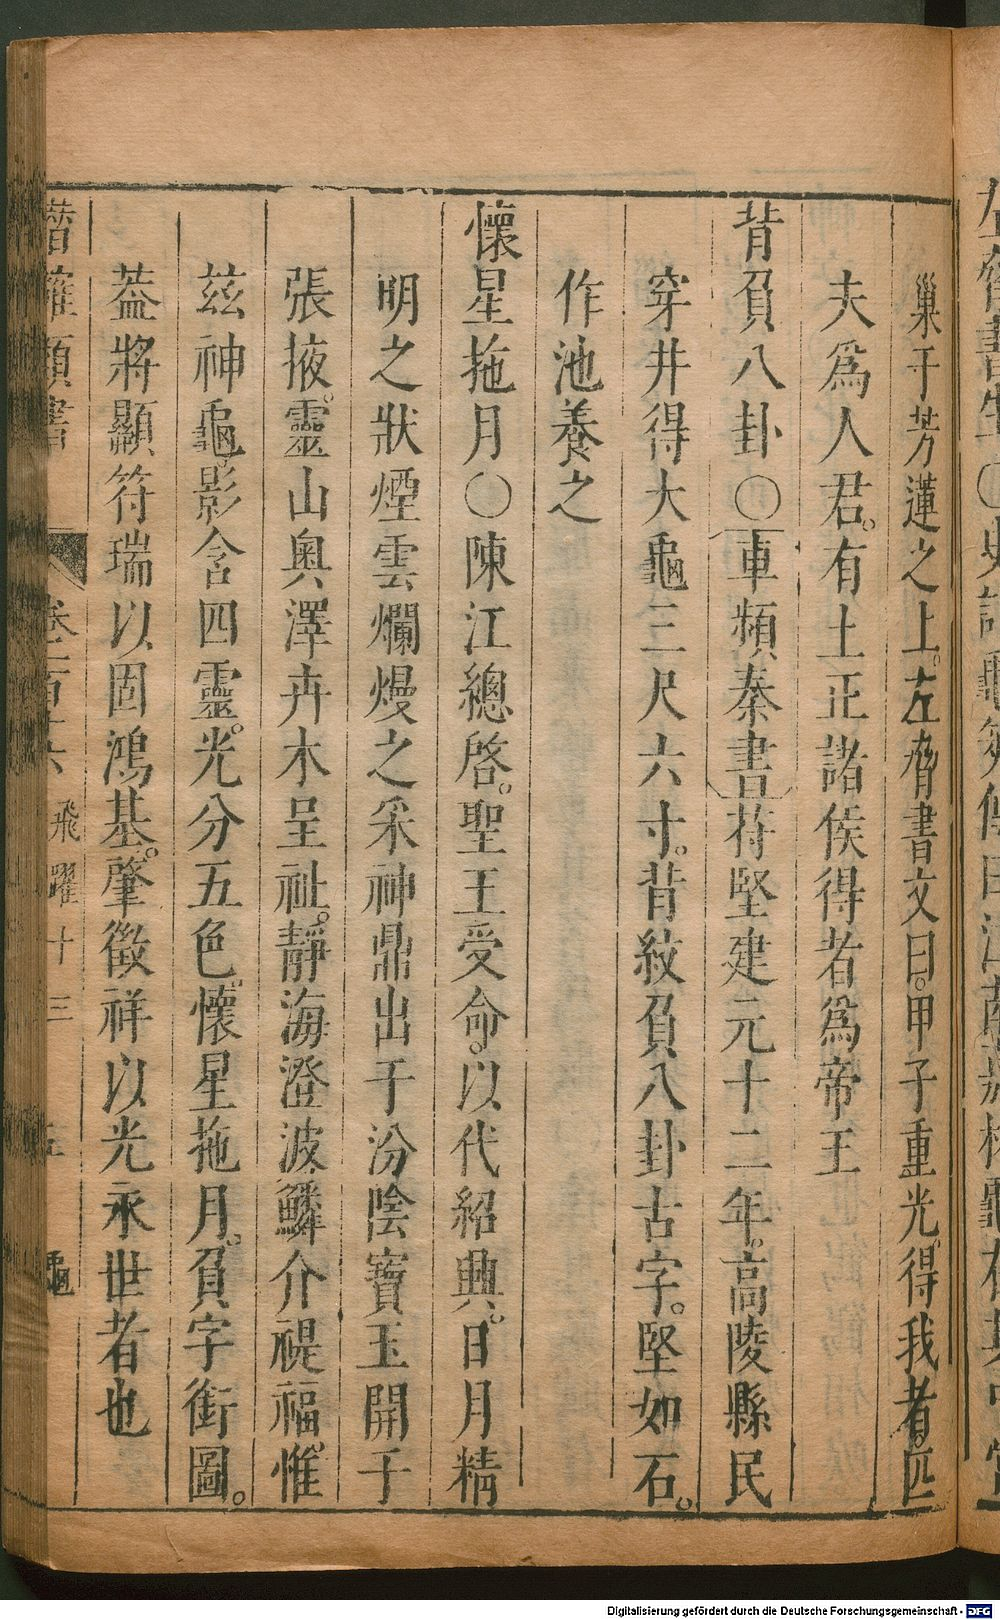 巢于芳蓮之上。左脅書文曰。甲子重光。得我者。匹
夫爲人君。有土正諸侯得者爲帝王
背負八卦〇車頻秦書苻堅建元十二年。高陵縣民
穿井得大龜三尺六寸。背紋負八卦古字。堅如石。
作池養之
懷星拖月〇陳江總啓。聖王受命。以代紹典。日月精
明之狀煙雲爛熳之采神鼎出于汾陰寶玉開于
張掖。靈山奧澤卉木呈祉。靜海澄波。鱗介禔福。惟
茲神龜。影含四靈。光分五色。懷星拖月。負字銜圖。
葢將顯符瑞以固鴻基。肇徵祥以光永世者也
卷一百十六 飛躍十三 五 龜
Digitalisierung gefördert durch die Deutsche Forschungsgemeinschaft - DFG